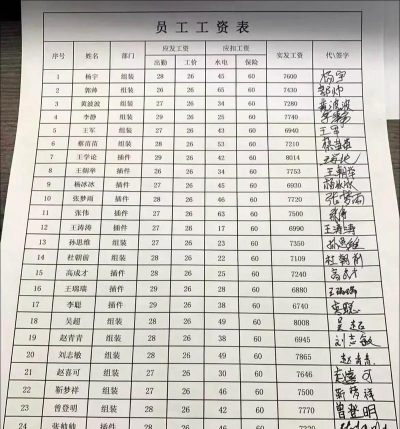 员工工资表
序号 姓名 部门 应发工资 应扣工资 实发工资 代\签字
出勤 工价 水电 保险
1 杨宇 组装 28 26 45 60 7600 杨宇
2 郭帅 组装 26 26 65 60 7430 郭帅
3 黄波波 组装 27 26 34 60 7280 黄波波
4 李静 组装 29 26 25 60 7740
5 王军 组装 27 26 43 60 6940 王军
6 蔡苗苗 组装 28 26 60
7 王学论 插件 29 26 42 60 8014
8 王朝举 插件 28 26 34 60 7752 王朝举
9 杨冰冰 插件 27 26 45 60 6930 杨冰冰
10 张梦雨 插件 28 26 46 60 7720 张梦雨
11 张伟 插件 27 26 63 60 7500 张伟
12 王涛涛 插件 27 26 17 60 6990 王涛涛
13 孙思维 组装 27 26 23 60 7350 孙思维
14 杜朝前 组装 26 26 22 60 7109 杜朝前
15 高成才 插件 28 26 25 60 7240 高成才
16 王瑞瑞 插件 26 26 30 60 6880 王瑞瑞
17 李聪 插件 29 26 38 60 6740
18 吴超 组装 27 26 49 60 8008 吴超
19 赵青青 组装 28 26 31 60 6945 刘志敏
20 刘志敏 组装 28 26 40 60 7865 赵青青
21 赵喜可 组装 27 26 30 60 7646 赵喜可
22 靳梦祥 组装 27 26 46 60 7500 靳梦祥
23 曾登明 组装 28 26 42 60 7320 曾登明
24